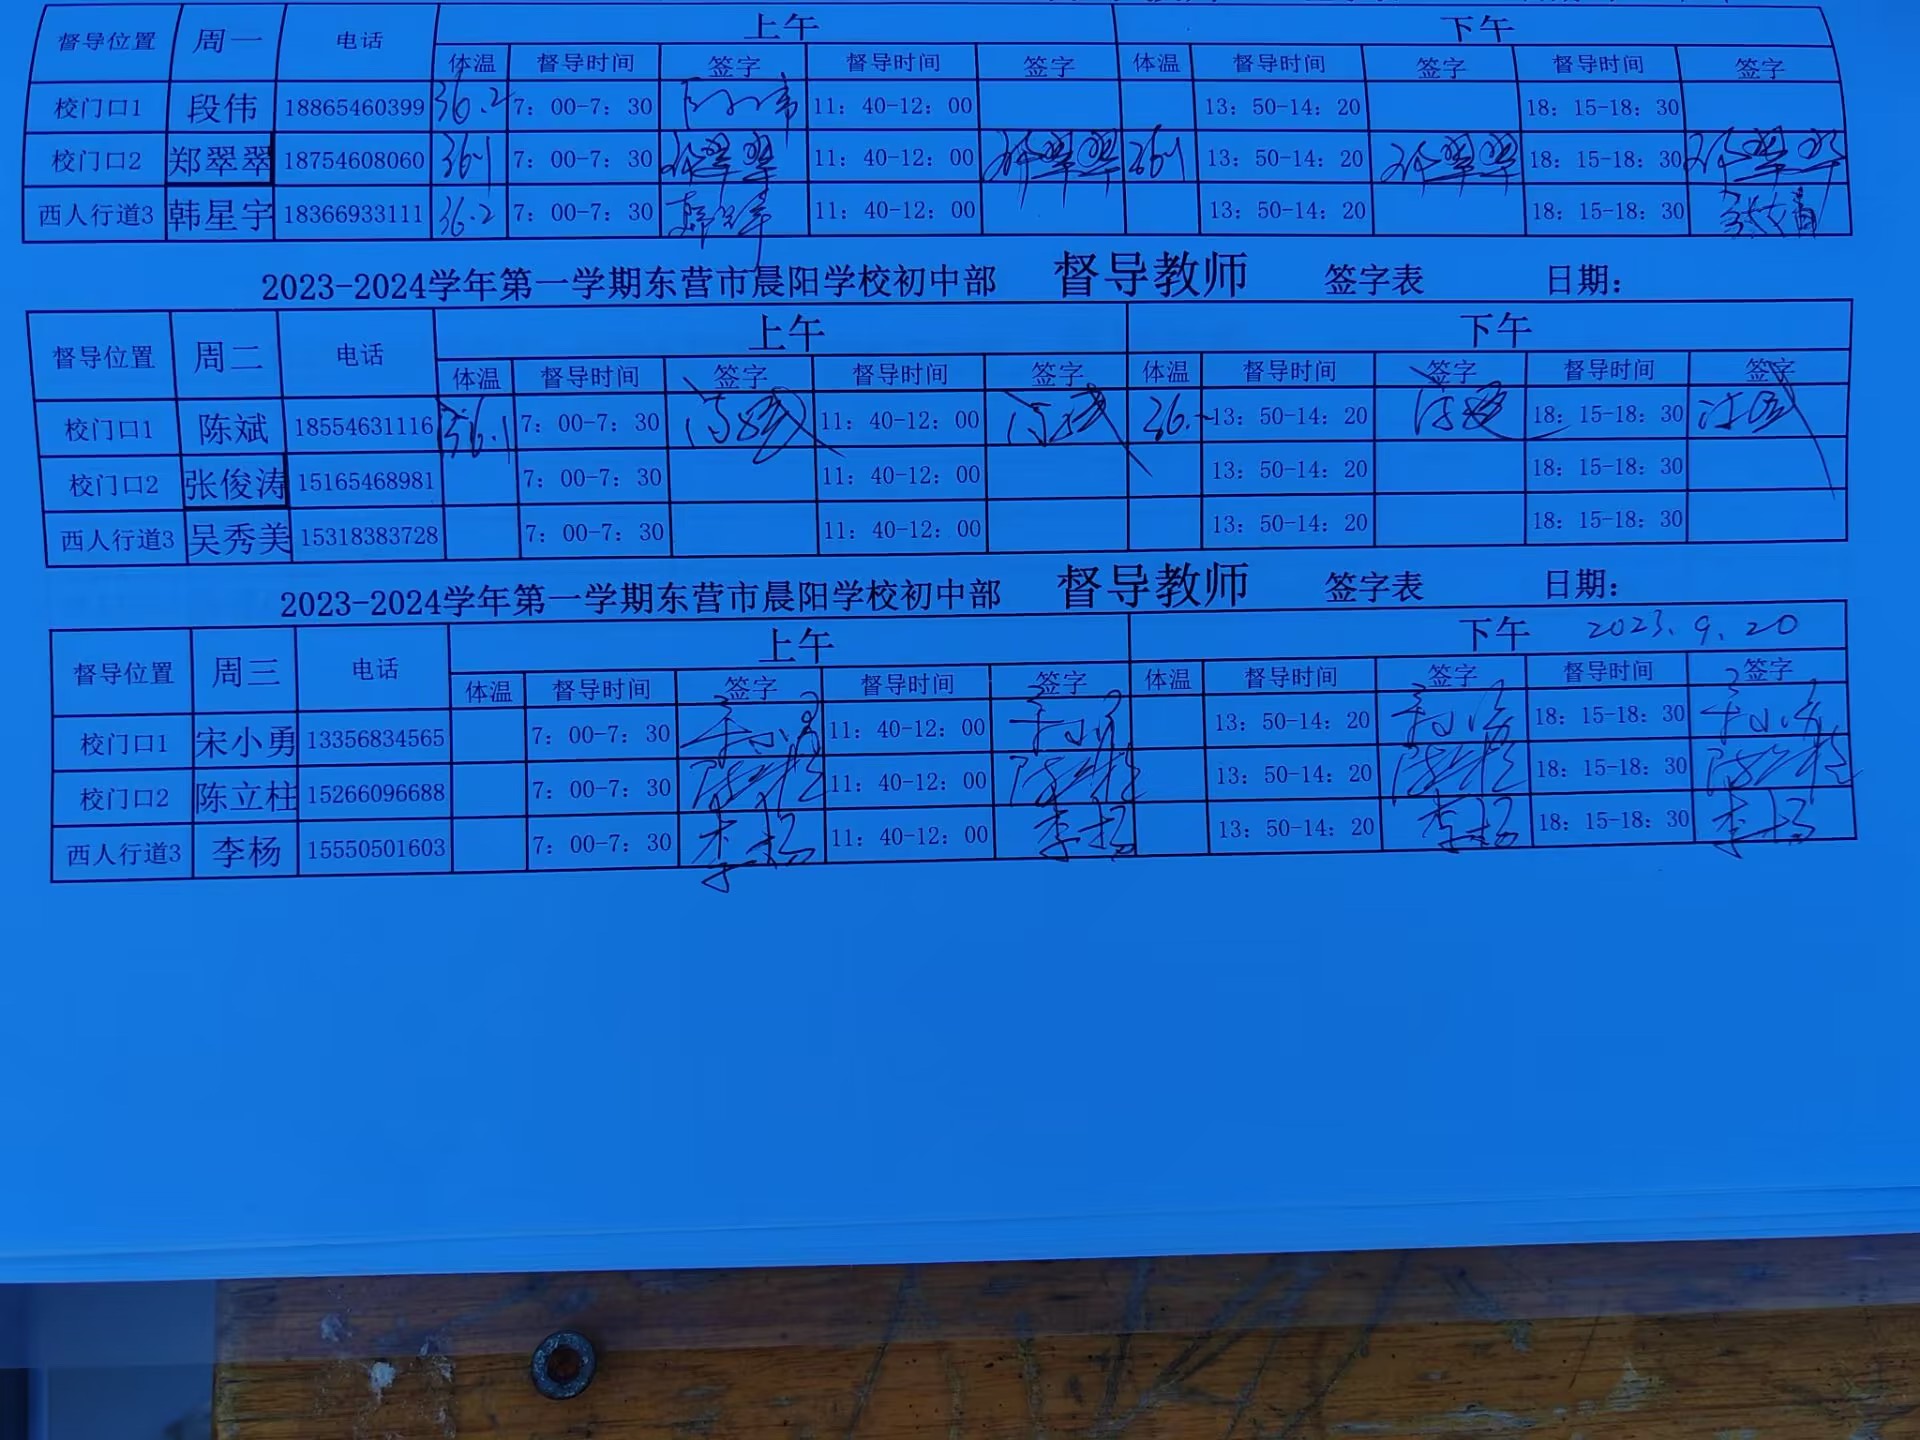 督导位置 周一 电话 上午 下午
体温 督导时间 签字 督导时间 签字 体温 督导时间 签字 督导时间 签字
校门口1 段伟 18865460399 36.2 7：00-7：30 段伟 11：40-12：00 13：50-14：20 18：15-18：30
校门口2 郑翠翠 18754608060 36.1 7：00-7：30 郑翠翠 11：40-12：00 郑翠翠 36.1 13：50-14：20 郑翠翠 18：15-18：30 郑翠翠
西人行道3 韩星宇 18366933111 36.2 7：00-7：30 11：40-12：00 13：50-14：20 18：15-18：30
2023-2024学年第一学期东营市晨阳学校初中部 督导教师 签字表 日期：
督导位置 周二 电话 上午 下午
体温 督导时间 签字 督导时间 签字 体温 督导时间 签字 督导时间 签字
校门口1 陈斌 18554631116 36.1 7：00-7：30 陈斌 11：40-12：00 陈斌 36. 13：50-14：20 陈斌 18：15-18：30 陈斌
校门口2 张俊涛 15165468981 7：00-7：30 11：40-12：00 13：50-14：20 18：15-18：30
西人行道3 吴秀美 15318383728 7：00-7：30 11：40-12：00 13：50-14：20 18：15-18：30
2023-2024学年第一学期东营市晨阳学校初中部 督导教师 签字表 日期：
督导位置 周三 电话 上午 下午 2023.9.20
体温 督导时间 签字 督导时间 签字 体温 督导时间 签字 督导时间 签字
校门口1 宋小勇 13356834565 7：00-7：30 宋小勇 11：40-12：00 宋小勇 13：50-14：20 宋小勇 18：15-18：30 宋小勇
校门口2 陈立柱 15266096688 7：00-7：30 陈立柱 11：40-12：00 陈立柱 13：50-14：20 陈立柱 18：15-18：30 陈立柱
西人行道3 李杨 15550501603 7：00-7：30 李杨 11：40-12：00 李杨 13：50-14：20 李杨 18：15-18：30 李杨